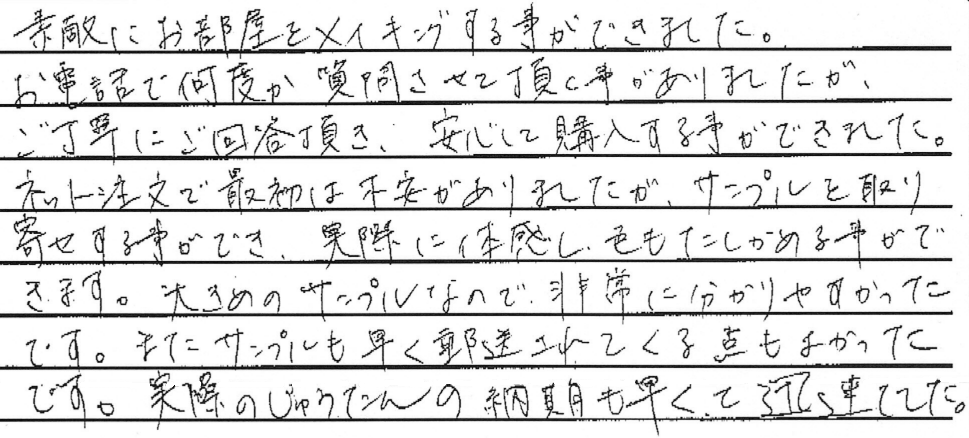 素敵にお部屋をメイキングする事ができました。
お電話で何度か質問させて頂く事がありましたが、
ご丁寧にご回答頂き、安心して購入する事ができました。
ネット注文で最初は不安がありましたが、サンプルを取り
寄せする事ができ、実際に体感し、色もたしかめる事がで
きます。大きめのサンプルなので、非常に分かりやすかった
です。またサンプルも早く郵送されてくる点もよかった
です。実際のじゅうたんの納期も早くて